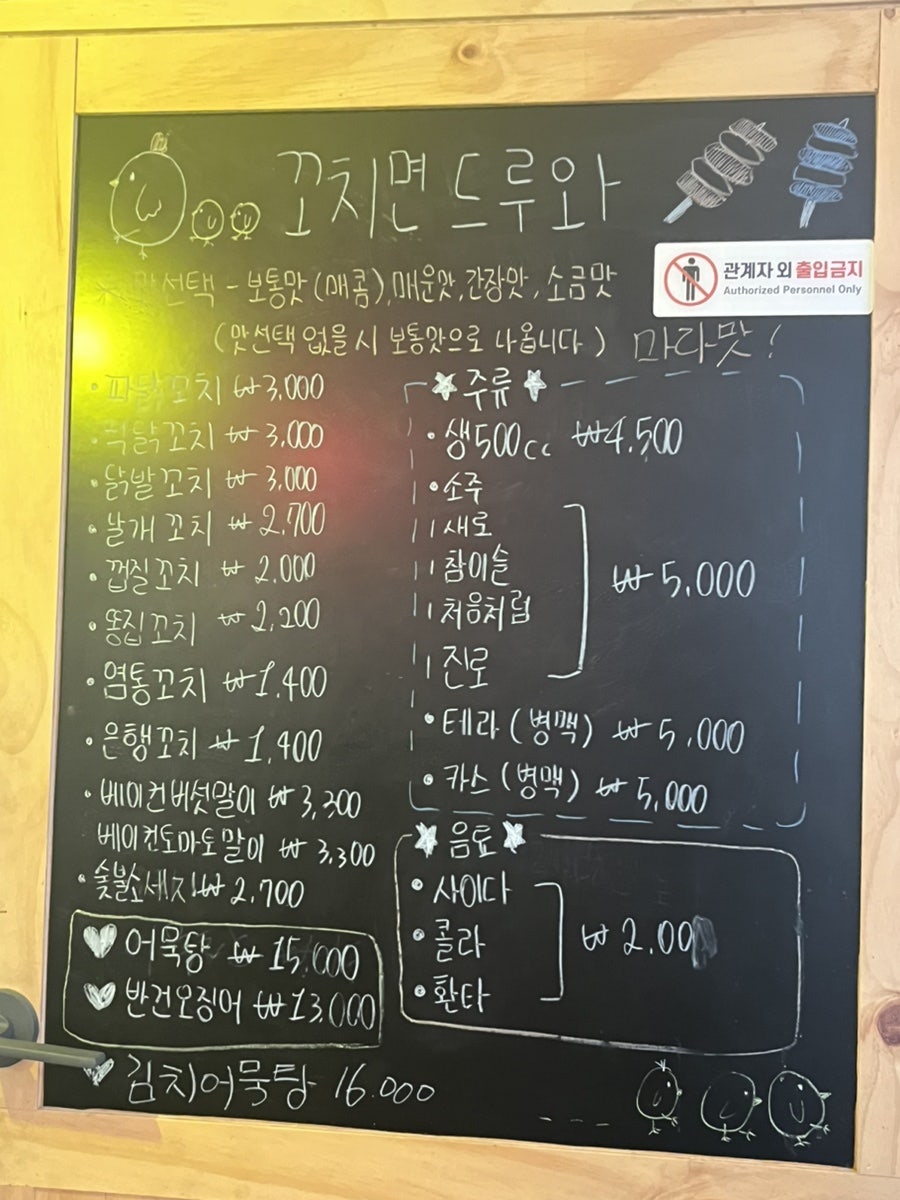 꼬치면 드루와
관계자 외 출입금지
Authorized Personnel Only
맛선택 - 보통맛(매콤),매운맛,간장맛,소금맛
(맛선택 없을 시 보통맛으로 나옵니다) 마라맛!
· 파닭꼬치 ₩3,000
닭꼬치 ₩3,000
· 닭발꼬치 ₩3,000
· 날개꼬치 ₩2,700
· 껍질꼬치 ₩2,000
· 똥집꼬치 ₩2,200
· 염통꼬치 ₩1,400
· 은행꼬치 ₩1,400
· 베이컨버섯말이 ₩3,300
베이컨토마토말이 ₩3,300
· 숯불소세지 ₩2,700
♥ 어묵탕 ₩15,000
♥ 반건오징어 ₩13,000
♥ 김치어묵탕 16.000
★주류★
· 생500cc ₩4,500
· 소주
새로
참이슬
처음처럼
진로
₩5,000
· 테라(병맥) ₩5,000
· 카스(병맥) ₩5,000
★음료★
· 사이다
· 콜라
· 환타
₩2.00